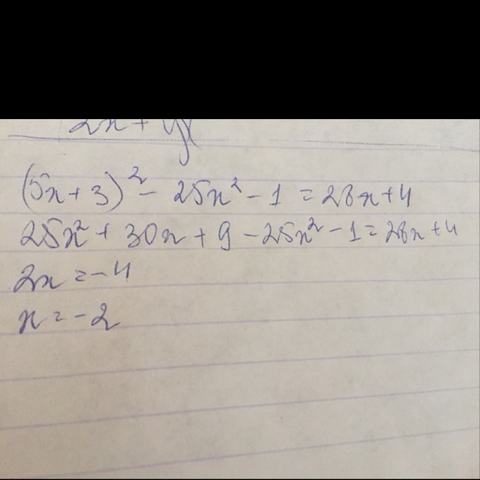 (5x+3)² - 25x² - 1 = 28x+4
25x² + 30x + 9 - 25x² - 1 = 28x + 4
2x = -4
x = -2